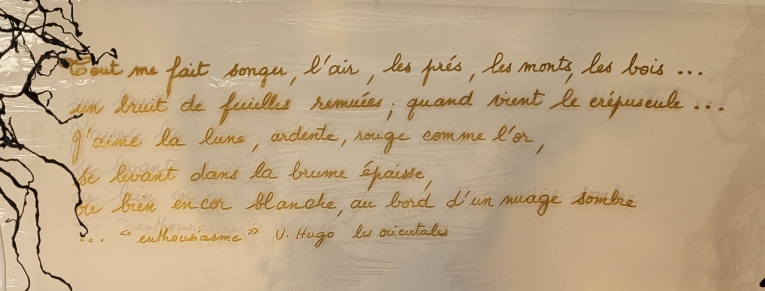 Tout me fait songer, l'air, les prés, les monts, les bois ...
un bruit de feuilles remuées ; quand vient le crépuscule ...
J'aime la lune, ardente, rouge comme l'or,
se levant dans la brume épaisse,
ou bien encor blanche, au bord d'un nuage sombre
... "enthousiasme" V. Hugo les orientales